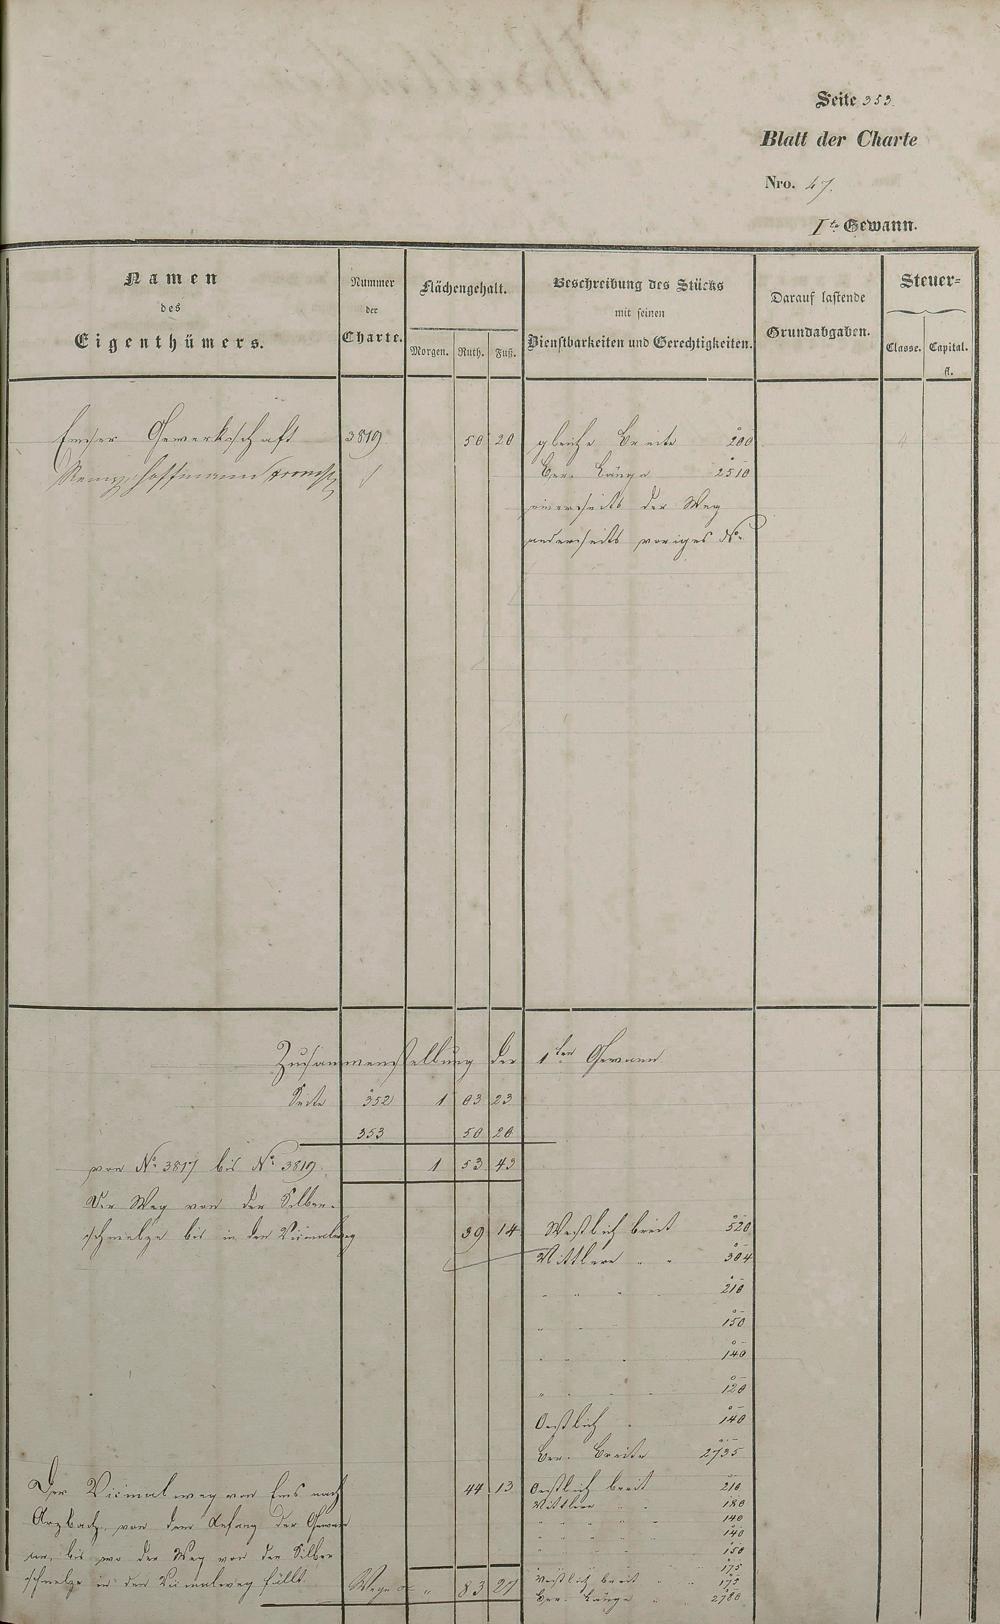 Seite 353.
Blatt der Charte
Nro. 47.
I te Gewann.
Namen des Eigenthümers.
Nummer der Charte.
Flächengehalt.
Morgen. Ruth. Fuß.
Beschreibung des Stücks mit seinen Dienstbarkeiten und Gerechtigkeiten.
Darauf lastende Grundabgaben.
Steuer-
Classe. Capital. fl.
Emser Gewerkschaft 3819 50 20 gleiche Breite 200
Hoffmann Ber. Länge 2510
einerseits der Weg
anderseits voriges No
Zusammenstellung der 1ten Gewann
Seite 352 1 03 23
353 50 20
von No 3817 bis No 3819. 1 53 43
Der Weg von der Silber-
schmelze bis in den Vicinalweg 39 14 Westlich breit 520
Mittlere " " 304
" " " " 210
" " " 150
" " " 140
" " " " 120
Oestlich " 140
Ber. Breite 2735
Der Vicinalweg von Ems nach 44 13 Oestlich breit 210
Mittlere " " 180
Arzbach, von dem Anfang der Gewan 140
" " " " 140
ne, bis wo der Weg von der Silber 150
175
schmelze in den Vicinalweg fällt. Wege " 83 27 Westlich breit " " 175
Ber. Länge " 2780